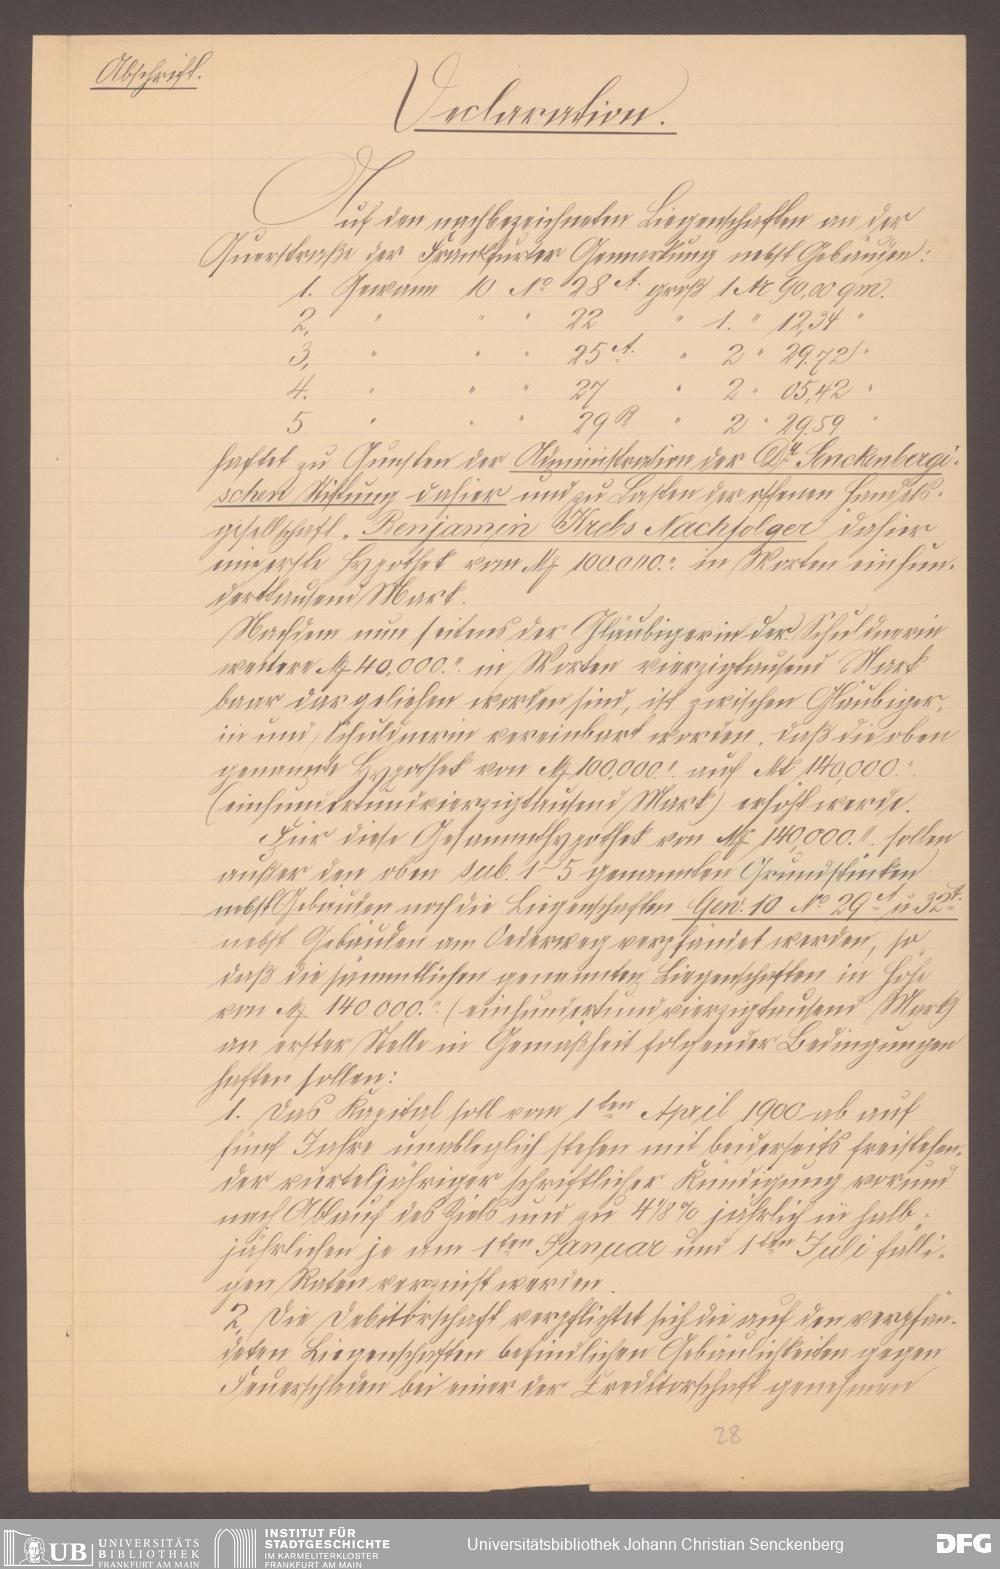 Abschrift.
Declaration.
Auf den nachbezeichneten Liegenschaften an der
Querstraße der Frankfurter Gemarkung nebst Gebäuden:
1. Gewann 10 No 28 A. groß 1 Ar 90,00 qm.
2, " " " 22 " 1. " 12,34 "
3, " " " 25 A. " 2 " 29.72 "
4. " " " 27 " 2 " 05,42 "
5 " " " 29 B " 2 " 29.59 "
haftet zu Gunsten der Administration der Dr. Senckenbergi-
schen Stiftung dahier und zu Lasten der offenen Handels-
gesellschaft "Benjamin Krebs Nachfolger" dahier
eine erste Hypothek von M 100.000." in Worten einhun-
derttausend Mark.
Nachdem nun seitens der Gläubigerin der Schuldnerin
weitere M 40,000." in Worten vierzigtausend Mark
baar dargeliehen worden sind, ist zwischen Gläubiger-
in und Schuldnerin vereinbart worden, daß die oben
genannte Hypothek von M 100,000." auf Mk 140,000."
(einhundertundvierzigtausend Mark) erhöht werde.
Für diese Gesammthypothek von M 140,000." sollen
außer den oben sub. 1-5 genannten Grundstücken
nebst Gebäuden noch die Liegenschaften Gew. 10 No 29 A u 32 A.
nebst Gebäuden am Oederweg verpfändet werden, so
daß die sämmtlichen genannten Liegenschaften in Höhe
von M 140.000." (einhundertundvierzigtausend Mark)
an erster Stelle in Gemäßheit folgender Bedingungen
haften sollen:
1. Das Kapital soll vom 1ten April 1900 ab auf
fünf Jahre unableglich stehen mit beiderseits freistehen-
der vierteljähriger schriftlicher Kündigung vor und
nach Ablauf des Ziels und zu 4 1/8 % jährlich in halb-
jährlichen je am 1ten Januar und 1ten Juli fälli-
gen Raten verzinst werden.
2, Die Debitorschaft verpflichtet sich die auf den verpfän-
deten Liegenschaften befindlichen Gebäulichkeiten gegen
Feuerschaden bei einer der Creditorschaft genehmen
28
UB UNIVERSITÄTS
BIBLIOTHEK
FRANKFURT AM MAIN
INSTITUT FÜR
STADTGESCHICHTE
IM KARMELITERKLOSTER
FRANKFURT AM MAIN
Universitätsbibliothek Johann Christian Senckenberg
DFG